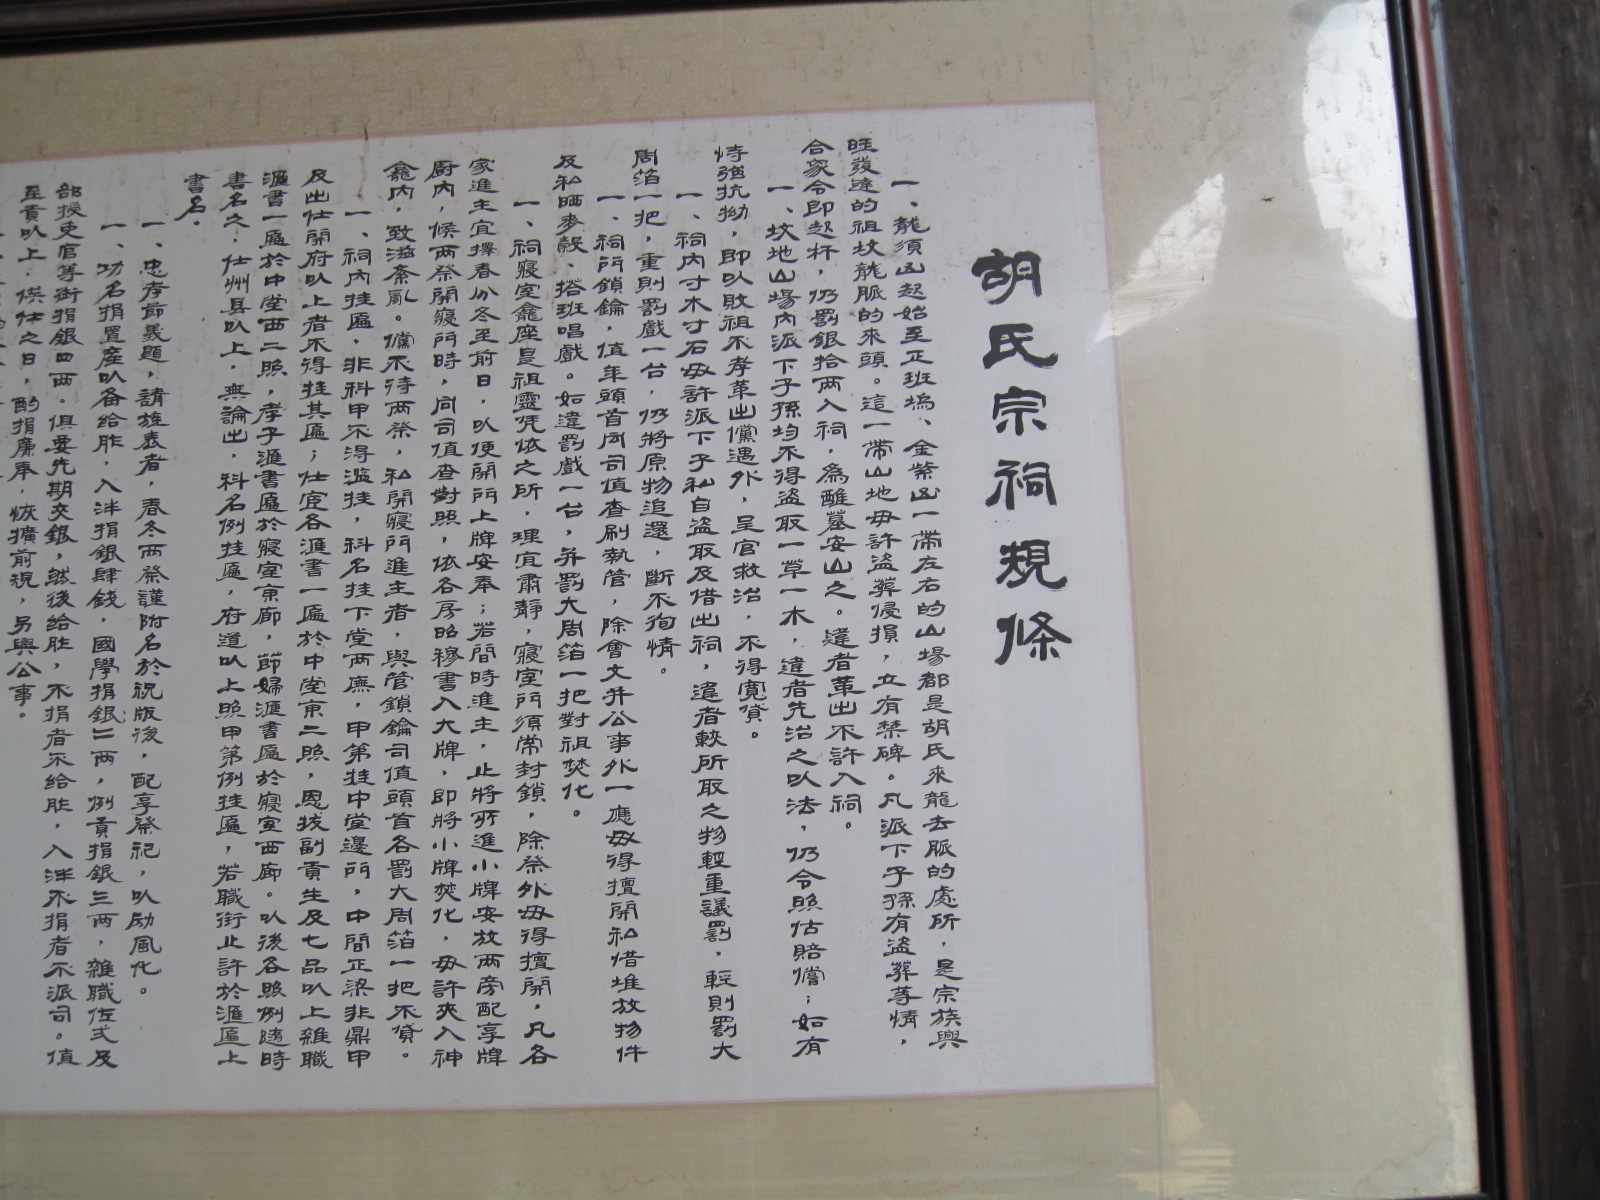 胡氏宗祠規條
一、龍須山起始至正班塢、金紫山一帶左右的山場都是胡氏來龍去脈的處所，是宗族興
旺發達的祖坟龍脈的來頭。這一帶山地毋許盜葬侵損，立有禁碑。凡派下子孫有盜葬等情，
合衆令即起杯，仍罰銀拾两入祠，為醮墓安山之。違者革出不許入祠。
一、坟地山場內派下子孫均不得盜取一草一木，違者先治之以法，仍令照估賠償；如有
恃強抗拗，即以敗祖不孝革出儻遇外，呈官救治，不得寬貸。
一、祠內寸木寸石毋許派下子私自盜取及借出祠，違者較所取之物輕重議罰，輕則罰大
周箔一把，重則罰戲一台，仍將原物追還，斷不徇情。
一、祠門鎖鑰，值年頭首同司值查刷執管，除會文并公事外一應毋得擅開私借堆放物件
及私晒麥穀、搭班唱戲。如違罰戲一台，并罰大周箔一把對祖焚化。
一、祠寢室龕座是祖靈凭依之所，理宜肅靜，寢室門須常封鎖，除祭外毋得擅開，凡各
家進主宜擇春分冬至前日，以便開門上牌安奉；若間時進主，止將所進小牌安放两旁配享牌
厨內，候两祭開寢門時，同司值查對照，依各房昭穆書入大牌，即將小牌焚化，毋許夾入神
龕內，致滋紊亂。儻不待两祭，私開寢門進主者，與管鎖鑰司值頭首各罰大周箔一把不貸。
一、祠內挂匾，非科甲不得濫挂，科名挂下堂两廡，甲第挂中堂邊門，中間正梁非鼎甲
及出仕開府以上者不得挂其匾；仕宦各滙書一匾於中堂東二照，恩拔副貢生及七品以上雜職
滙書一匾於中堂西二照，孝子滙書匾於寢室東廊，節婦滙書匾於寢室西廊。以後各照例隨時
書名之，仕州县以上，無論出，科名例挂匾，府道以上照甲第例挂匾，若職銜止許於滙匾上
書名。
一、忠孝節義題，請旌表者，春冬两祭謹附名於祝版後，配享祭祀，以励風化。
一、功名捐置產以备給胙，入泮捐銀肆錢，國學捐銀二两，例貢捐銀三两，雜職佐弍及
部授吏官等銜捐銀四两。俱要先期交銀，然後給胙，不捐者不給胙，入泮不捐者不派司。值
至貢以上，供仕之日，酌捐廉奉，恢擴前規，另與公事。